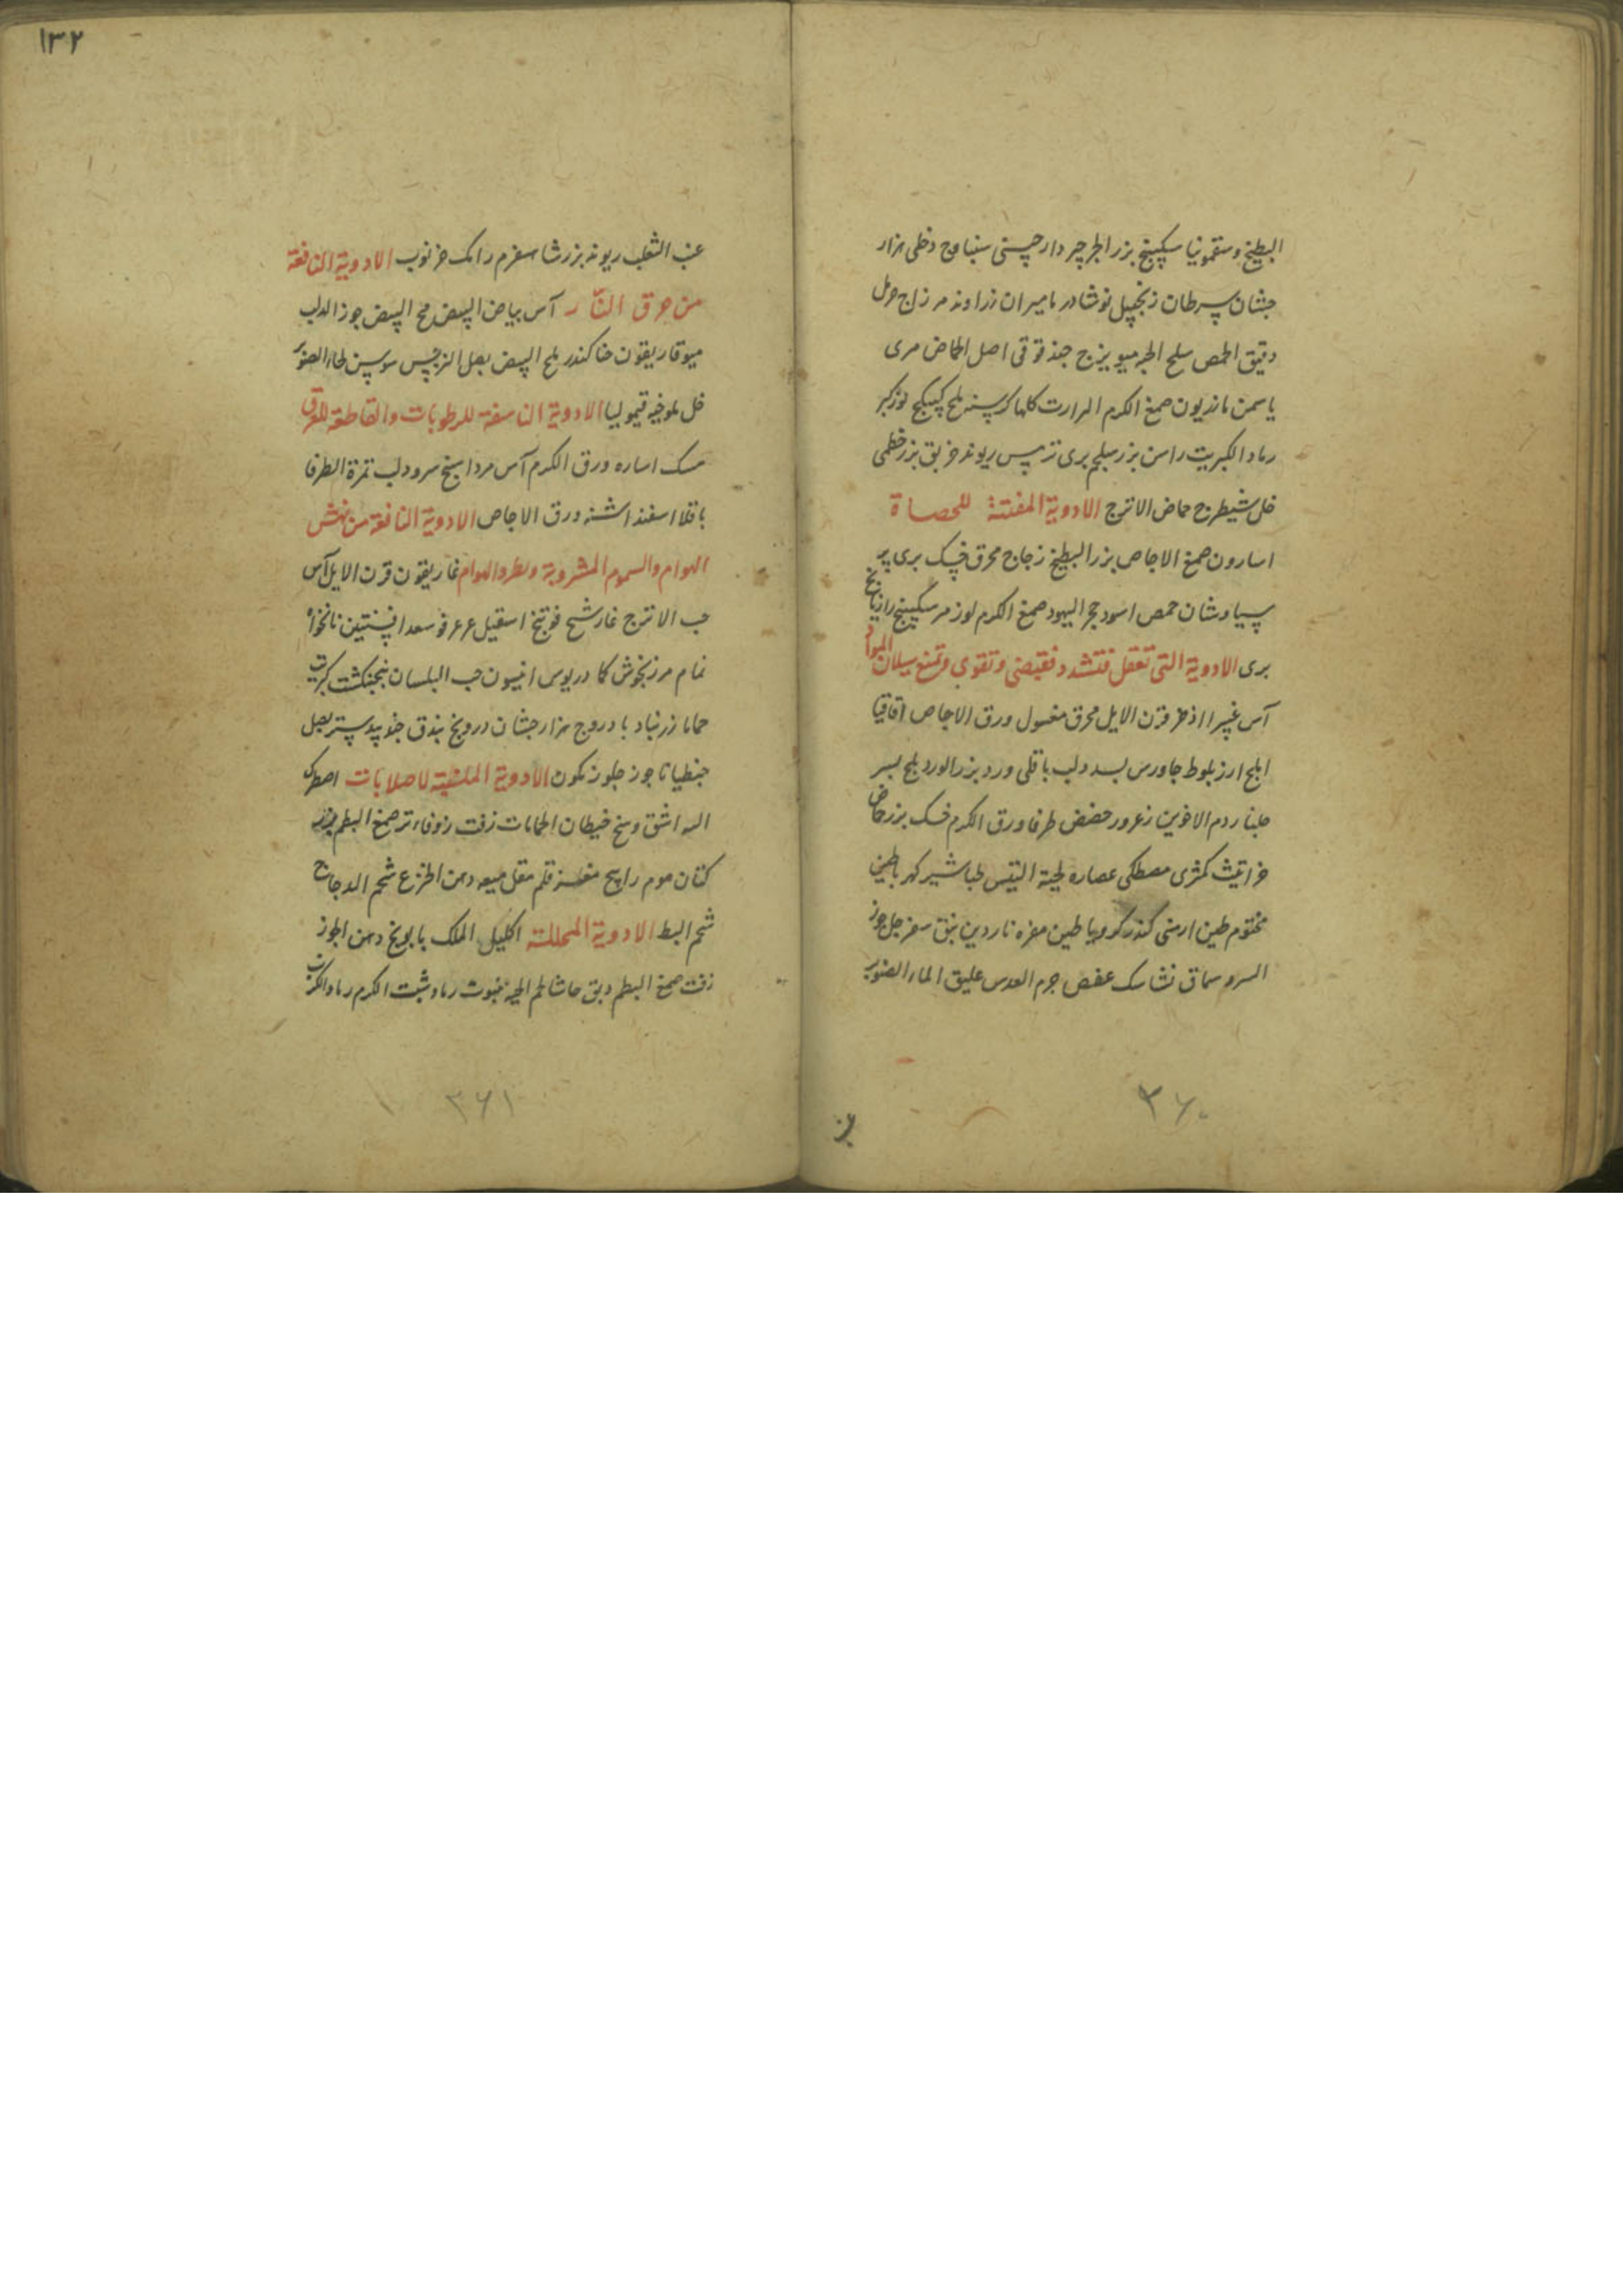 البطيخ وسقمونيا سكبينج بزر الجرجير دارچينى دفلى هزار
جشان سرطان زنجبيل نوشادر ماميران زراوند مر زاج حرمل
دقيق الحمص سلح الحيه ميويزج حندقوقى اصل الحماض مرى
ياسمن مازريون صمغ الكرم المرارت كلها كرسنه ملح كبيكج لوز كبر
رماد الكبريت راسن بزر سلجم برى ترمس ريوند خربق بزر خطمى
خل شيطرج حماض الاترج الادوية المفتتة للحصاة
اسارون صمغ الاجاص بزر البطيخ زجاج محرق خسك برى پر
سياوشان حمص اسود حجر اليهود صمغ الكرم لوز مر سكبينج رازيانج
برى الادوية التى تعقل فتشدد فقبض وتقوى وتمنع سيلان المواد
آس غبيرا اذخر قرن الايل محرق مغسول ورق الاجاص اقاقيا
ارز بلوط جاورس بسد دلب باقلى ورد بزر الورد بلح بسر
جلنار دم الاخوين زعرور حضض طرفا ورق الكرم خسك بزر حماض
كمثرى مصطكى عصاره لحية التيس طباشير كهربا طين
مختوم طين ارمنى كندر كرويا طين مغره ناردين نبق سفرجل جوز
السرو سماق نشا سك عفص جرم العدس عليق الماء الصنوبر
٣٦٠
١٣٢
عنب الثعلب ريوند بزر شاسفرم رامك خرنوب الادوية النافعة
من حرق النار آس بياض البيض مح البيض جوز الدلب
ميوقاريقون حنا كندر ملح البيض بصل النرجس سوسن لحاء الصنوبر
خل ملوخيه قيموليا الادوية الناشفة للرطوبات والقاطعة للعرق
مسك ورق الكرم آس مرداسنج سرو دلب ثمرة الطرفا
باقلا اسفند اشنه ورق الاجاص الادوية النافعة من نهش
الهوام والسموم المشروبة وطرد الهوام غاريقون قرن الايل آس
حب الاترج غار شيح فوتنج اسقيل عرعر فو سعد افسنتين نانخواه
نمام مرزنجوش كمادريوس انيسون حب البلسان بنجنكشت كبريت
حماما زرنباد بادروج هزارجشان درونج بندق جندبيدستر بصل
جنطيانا جوز جلوز كمون الادوية الملينة للصلابات اصطرك
اليه اشق وسخ حيطان الحمامات زفت زوفاء تر صمغ البطم بزر
كتان موم قلم مقل ميعه دهن الخروع شحم الدجاج
شحم البط الادوية المحللة اكليل الملك بابونج دهن الجوز
زفت صمغ البطم دبق حاشا لحم الحيه ينبوت رماد شبت الكرم رماد الكرنب
٣٦١